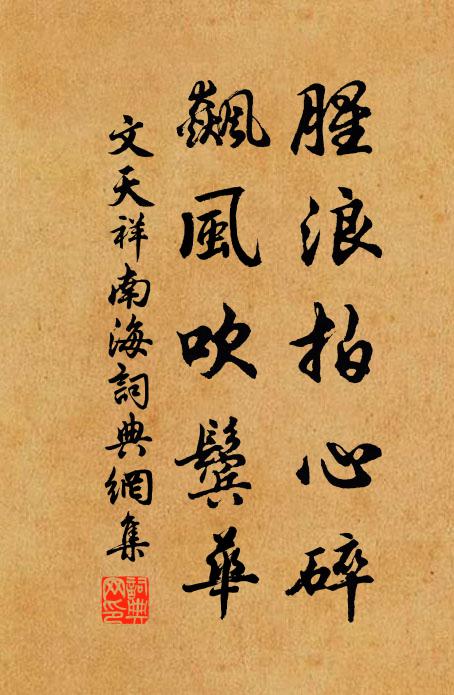 腥浪拍心碎
飆風吹鬢華
文天祥南海詞典網集
詞典網印